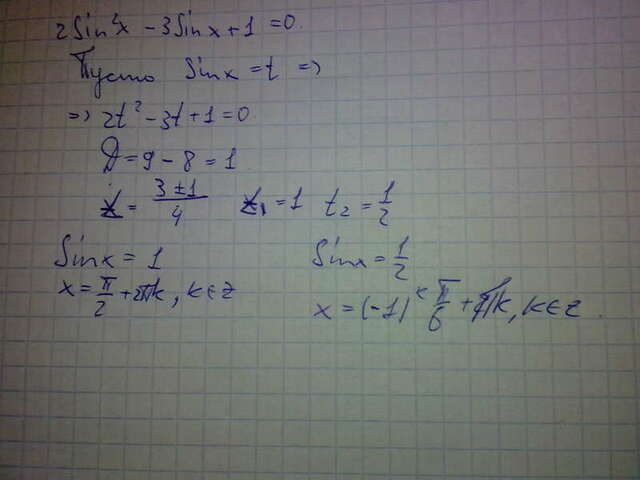 2Sin²x - 3Sinx + 1 = 0.
Пусть Sinx = t ⇒
⇒ 2t² - 3t + 1 = 0
D = 9 - 8 = 1
t = (3 ± 1)/4 t₁ = 1 t₂ = 1/2
Sinx = 1 Sinx = 1/2
x = π/2 + 2πk, k∈z x = (-1)ᵏ π/6 + πk, k∈z.